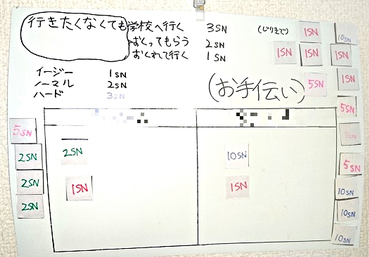 行きたくなくても学校へ行く 3SN (じりきで)
おくってもらう 2SN
おくれて行く 1SN
イージー 1SN
ノーマル 2SN
ハード 3SN
(お手伝い)
1SN
10SN
1SN 1SN 1SN
5SN 1SN
5SN
5SN
2SN
2SN
2SN
2SN
1SN
10SN
1SN
5SN
10SN
10SN
10SN